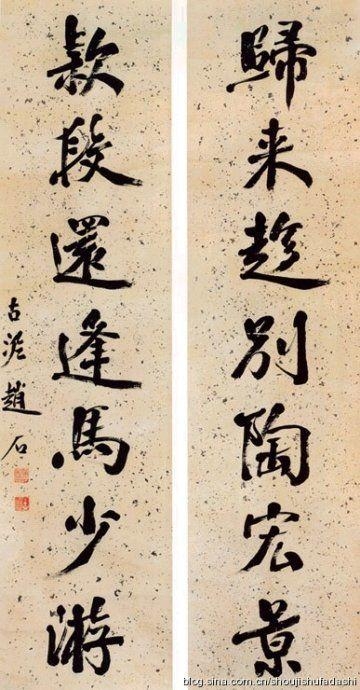 歸来趁別陶宏景
款段還逢馬少游
古泥趙石
blog.sina.com.cn/shoujishufadashi